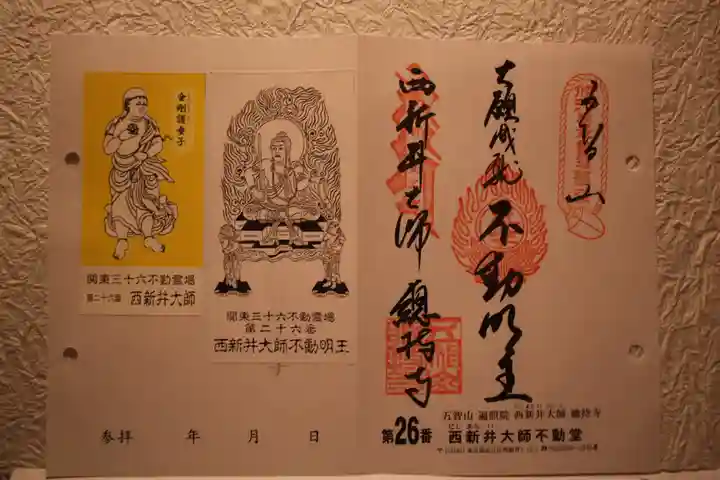 五智山
大願成就 不動明王
西新井大師 總持寺
五智山 遍照院 西新井大師 總持寺
第26番
にしあらい
西新井大師不動堂
金剛護童子
関東三十六不動霊場
第二十六番 西新井大師
関東三十六不動霊場
第二十六番
西新井大師不動明王
参拝 年 月 日